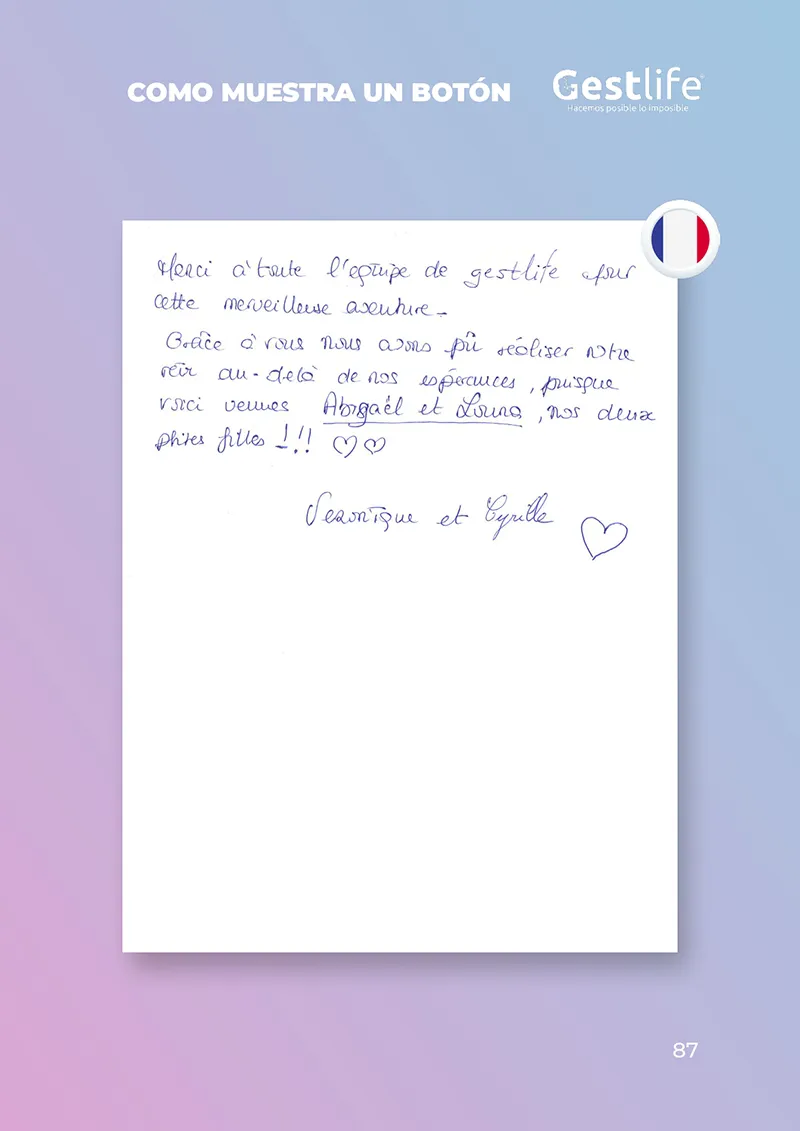 COMO MUESTRA UN BOTÓN
Gestlife
Hacemos posible lo imposible
Merci à toute l'equipe de gestlife pour
cette merveilleuse aventure_
Grâce à vous nous avons pû réaliser notre
rêve au-delà de nos espérances, puisque
voici venues Abigaël et Louna, nos deux
ptites filles !!! ♡♡
Veronique et Cyrille ♡
87